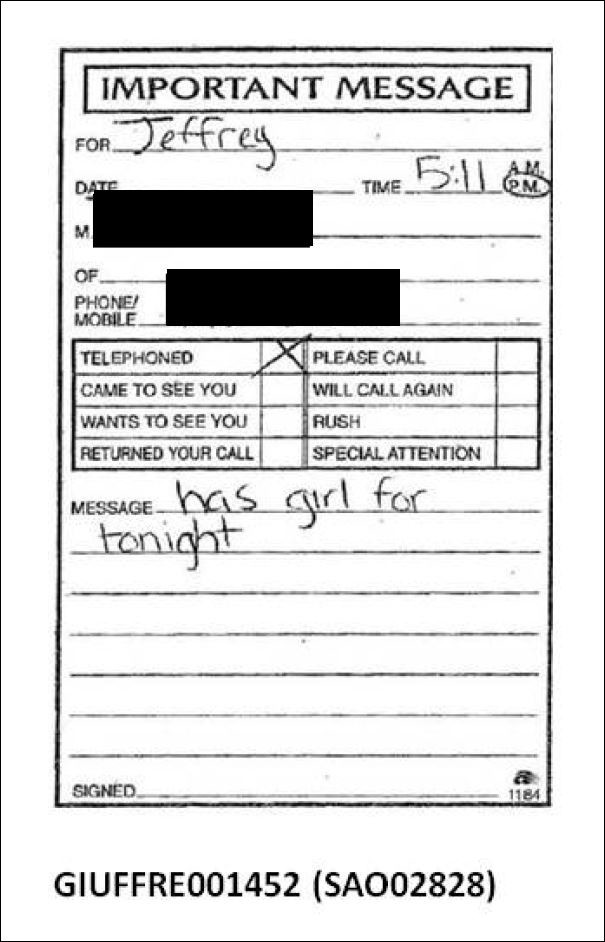 IMPORTANT MESSAGE
FOR Jeffrey
DATE TIME 5:11 A.M.
P.M.
M
OF
PHONE/
MOBILE
TELEPHONED PLEASE CALL
CAME TO SEE YOU WILL CALL AGAIN
WANTS TO SEE YOU RUSH
RETURNED YOUR CALL SPECIAL ATTENTION
MESSAGE has girl for
tonight
SIGNED
1184
GIUFFRE001452 (SAO02828)